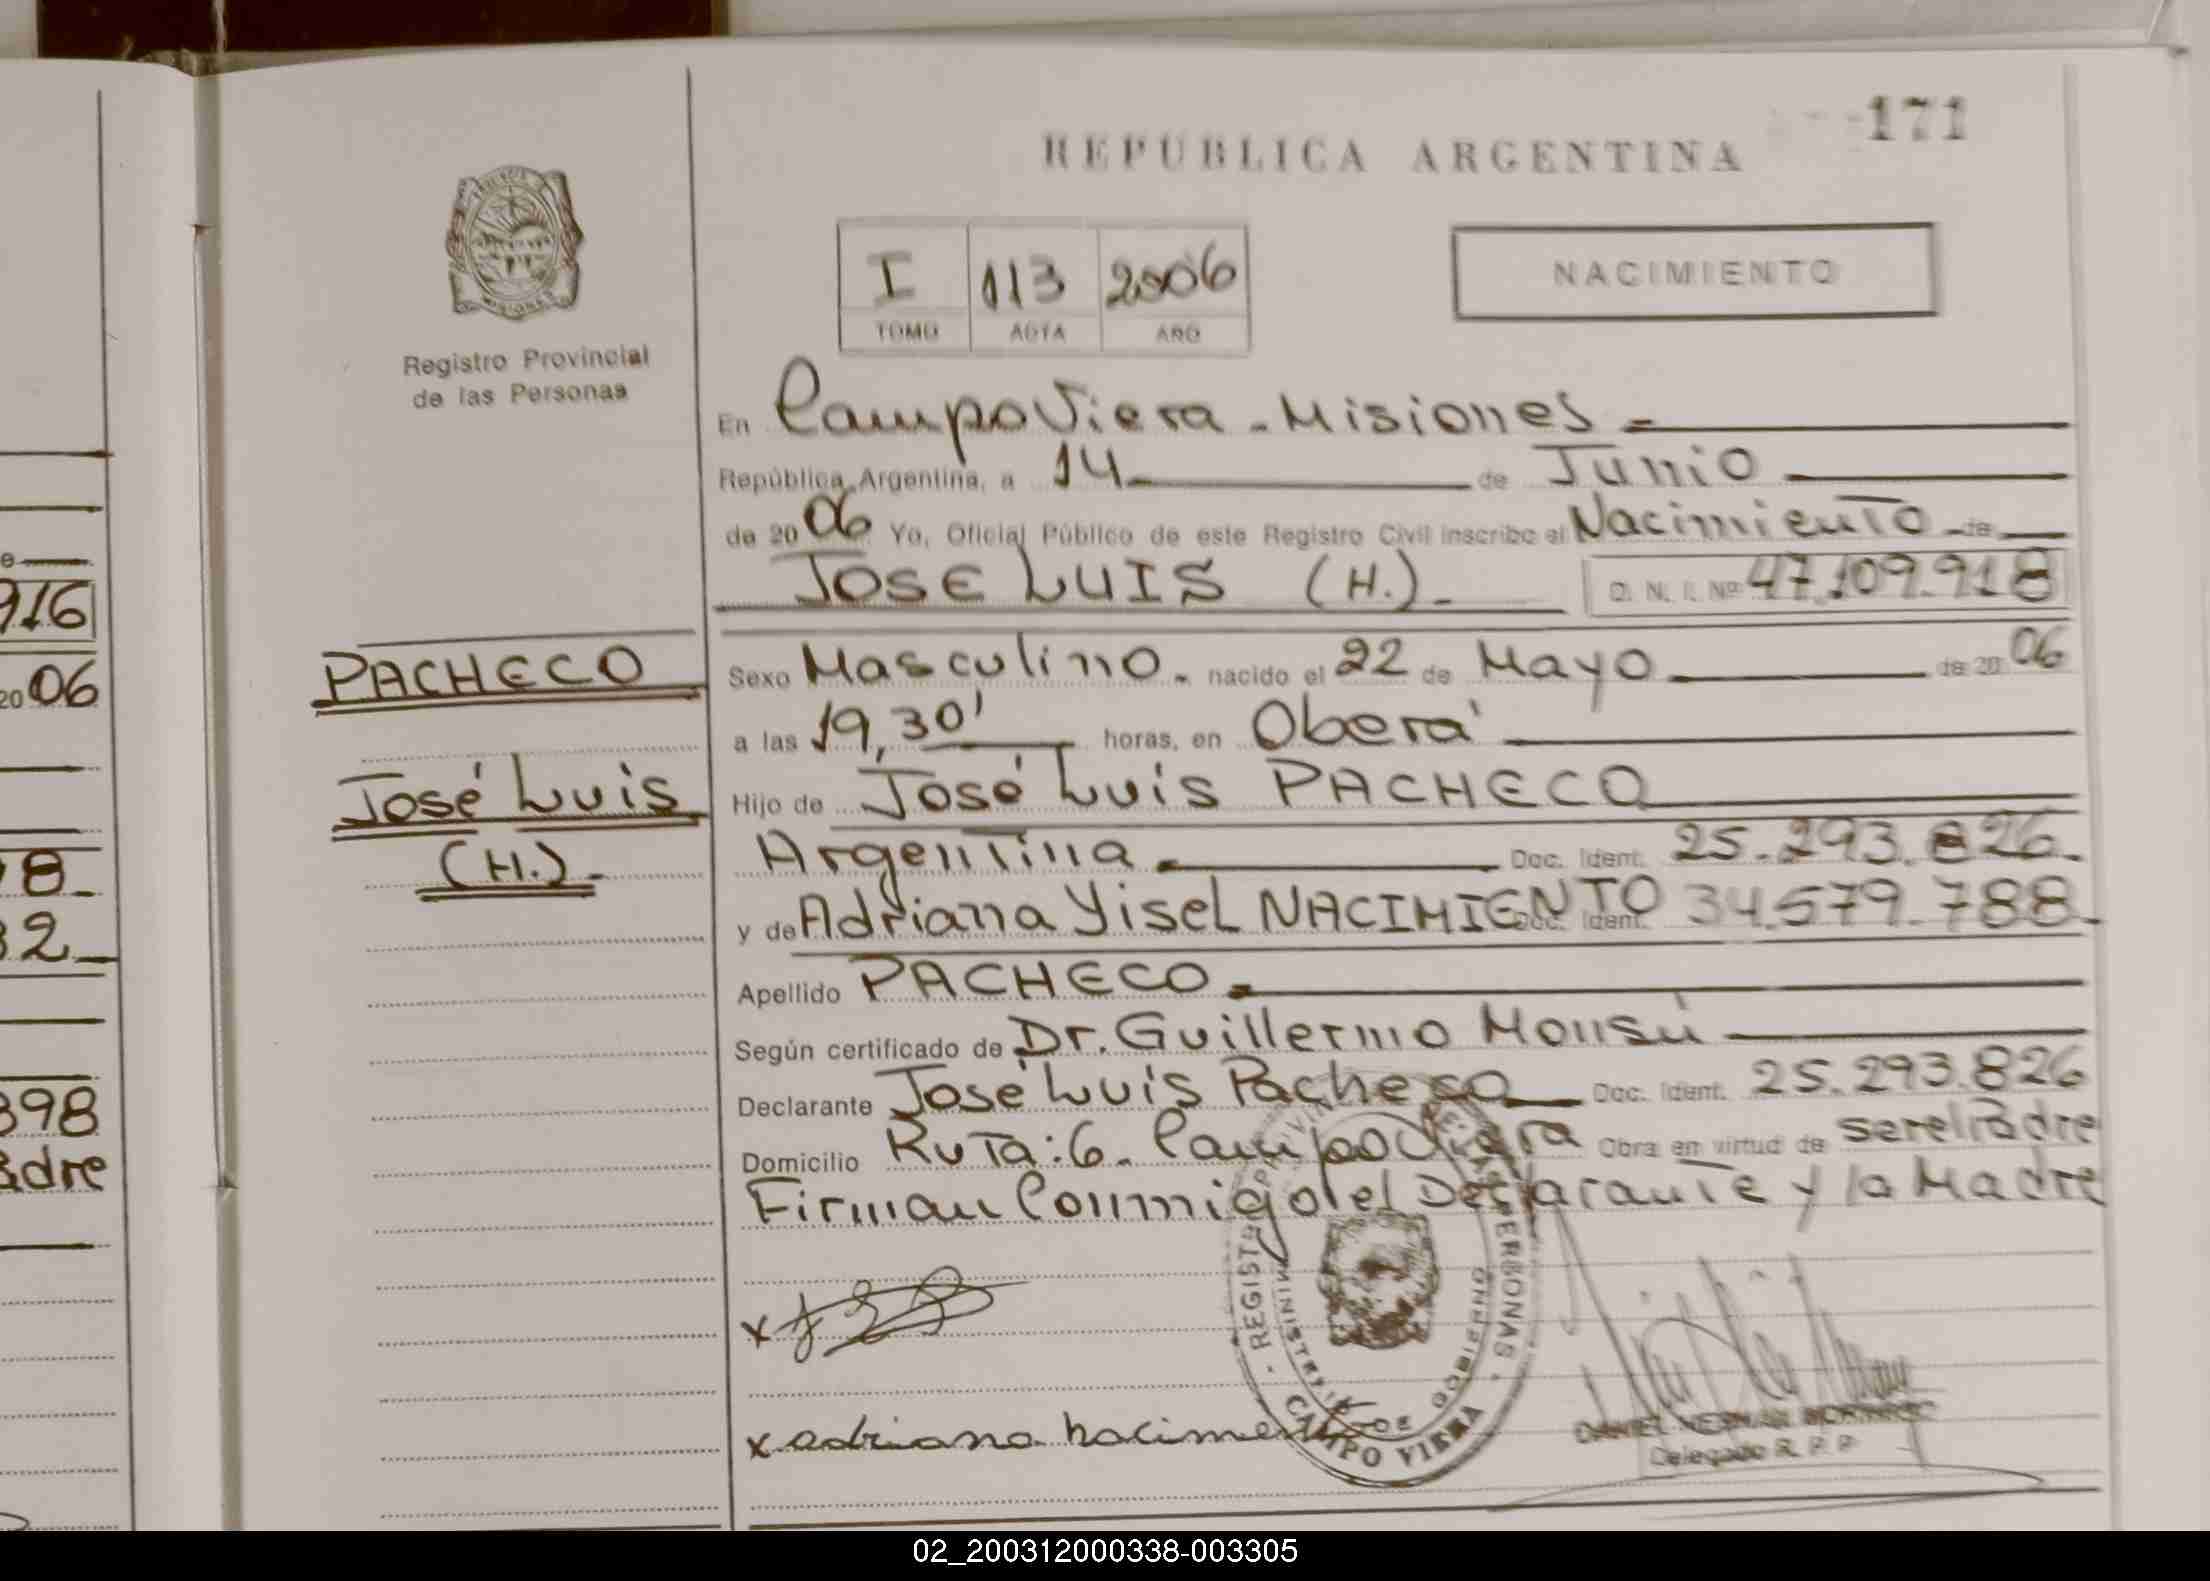 171
REPUBLICA ARGENTINA
I 113 2006
TOMO ACTA AÑO
NACIMIENTO
Registro Provincial
de las Personas
En Campo Viera - Misiones
República Argentina, a 14 de Junio
de 2006 Yo, Oficial Público de este Registro Civil inscribo el Nacimiento de
JOSE LUIS (H.) D. N. I. Nº 47.109.918
PACHECO
José Luis
(H.)
Sexo Masculino. nacido el 22 de Mayo de 2006
a las 19,30' horas, en Oberá
Hijo de José Luis PACHECO
Argentina Doc. Ident. 25.293.826
y de Adriana Yisel NACIMIENTO Doc. Ident. 34.579.788
Apellido PACHECO
Según certificado de Dr. Guillermo Monsú
Declarante José Luis Pacheco Doc. Ident. 25.293.826
Domicilio Ruta: 6. Campo Viera Obra en virtud de ser el Padre
Firman Conmigo el Declarante y la Madre
x adriana nacimento
REGISTRO PERSONAS
MINISTERIO DE GOBIERNO
CAMPO VIERA
DANIEL
Delegado R. P. P.
916
2006
8
32
398
adre
02_200312000338-003305